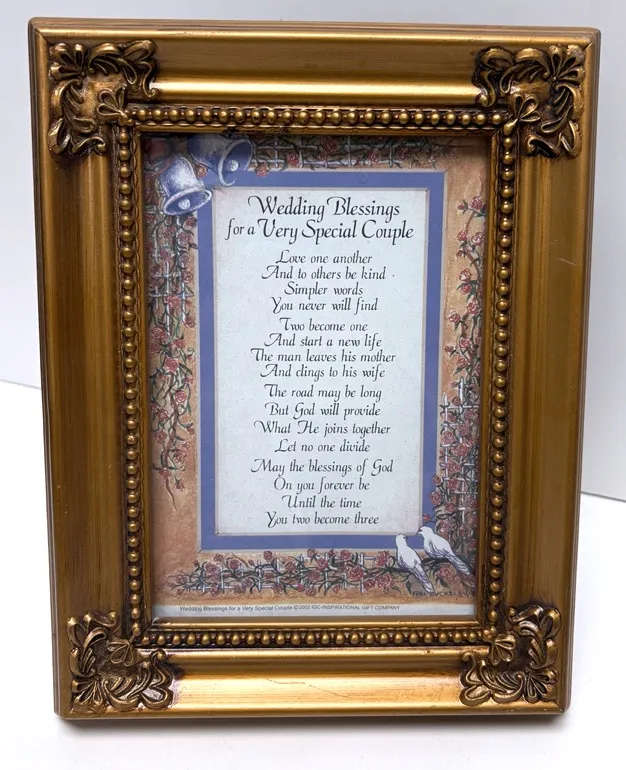 Wedding Blessings
for a Very Special Couple
Love one another
And to others be kind
Simpler words
You never will find
Two become one
And start a new life
The man leaves his mother
And clings to his wife
The road may be long
But God will provide
What He joins together
Let no one divide
May the blessings of God
On you forever be
Until the time
You two become three
Wedding Blessings for a Very Special Couple ©2003 IGC-INSPIRATIONAL GIFT COMPANY